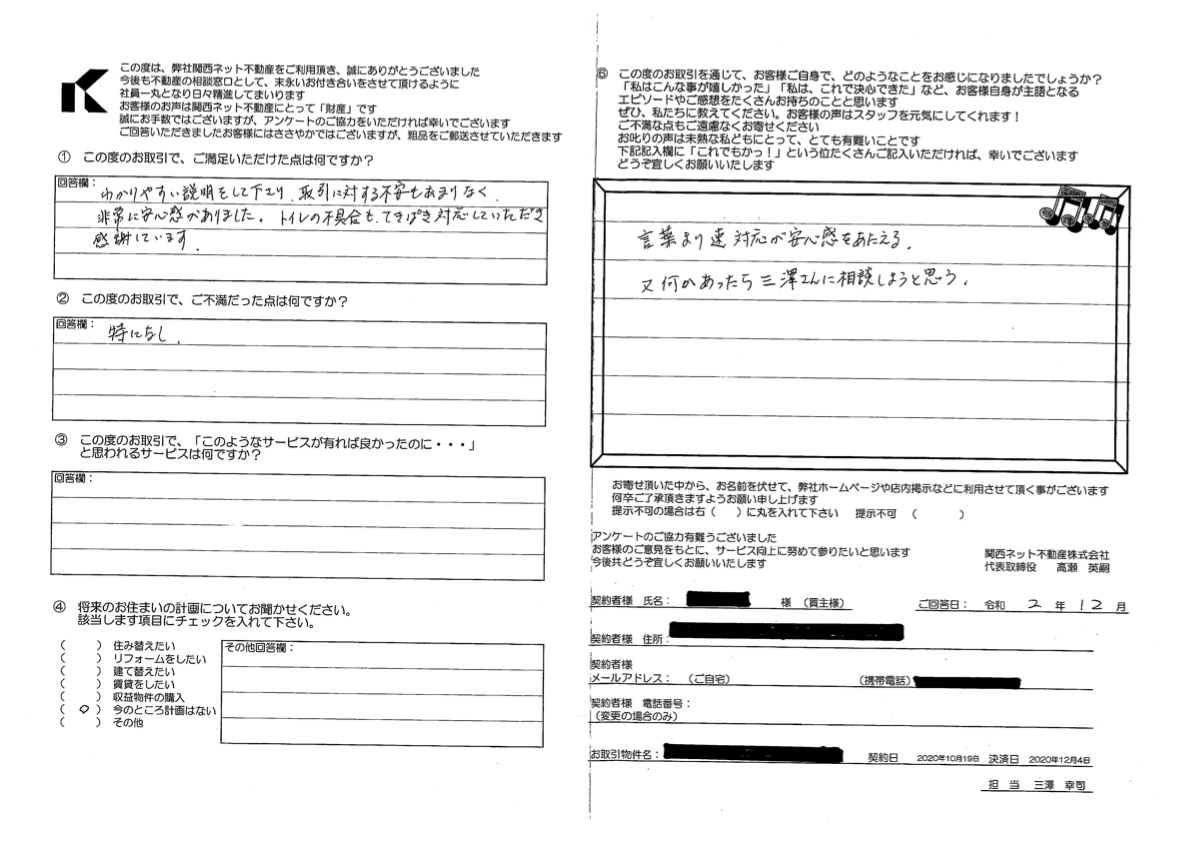 この度は、弊社関西ネット不動産をご利用頂き、誠にありがとうございました
今後も不動産の相談窓口として、末永いお付き合いをさせて頂けるように
社員一丸となり日々精進してまいります
お客様のお声は関西ネット不動産にとって「財産」です
誠にお手数ではございますが、アンケートのご協力をいただければ幸いでございます
ご回答いただきましたお客様にはささやかではございますが、粗品をご郵送させていただきます
① この度のお取引で、ご満足いただけた点は何ですか？
回答欄：
わかりやすい説明をして下さり、取引に対する不安もあまりなく
非常に安心感がありました。トイレの不具合も、てきぱき対応していただき
感謝しています。
② この度のお取引で、ご不満だった点は何ですか？
回答欄：
特になし。
③ この度のお取引で、「このようなサービスが有れば良かったのに・・・」
と思われるサービスは何ですか？
回答欄：
④ 将来のお住まいの計画についてお聞かせください。
該当します項目にチェックを入れて下さい。
（　　） 住み替えたい
（　　） リフォームをしたい
（　　） 建て替えたい
（　　） 賃貸をしたい
（　　） 収益物件の購入
（　○　） 今のところ計画はない
（　　） その他
その他回答欄：
⑥ この度のお取引を通じて、お客様ご自身で、どのようなことをお感じになりましたでしょうか？
「私はこんな事が嬉しかった」「私は、これで決心できた」など、お客様自身が主語となる
エピソードやご感想をたくさんお持ちのことと思います
ぜひ、私たちに教えてください。お客様の声はスタッフを元気にしてくれます！
ご不満な点もご遠慮なくお寄せください
お叱りの声は未熟な私どもにとって、とても有難いことです
下記記入欄に「これでもかっ！」という位たくさんご記入いただければ、幸いでございます
どうぞ宜しくお願いいたします
言葉より速対応が安心感をあたえる。
又何かあったら三澤さんに相談しようと思う。
お寄せ頂いた中から、お名前を伏せて、弊社ホームページや店内掲示などに利用させて頂く事がございます
何卒ご了承頂きますようお願い申し上げます
提示不可の場合は右（　　）に丸を入れて下さい　提示不可　（　　　）
アンケートのご協力有難うございました
お客様のご意見をもとに、サービス向上に努めて参りたいと思います
今後共どうぞ宜しくお願いいたします
関西ネット不動産株式会社
代表取締役　高瀬　英嗣
契約者様　氏名：　様　（買主様）　ご回答日：　令和　2　年　12　月
契約者様　住所：
契約者様
メールアドレス：　（ご自宅）　（携帯電話）
契約者様　電話番号：
（変更の場合のみ）
お取引物件名：　契約日　2020年10月19日　決済日　2020年12月4日
担　当　三澤　幸司